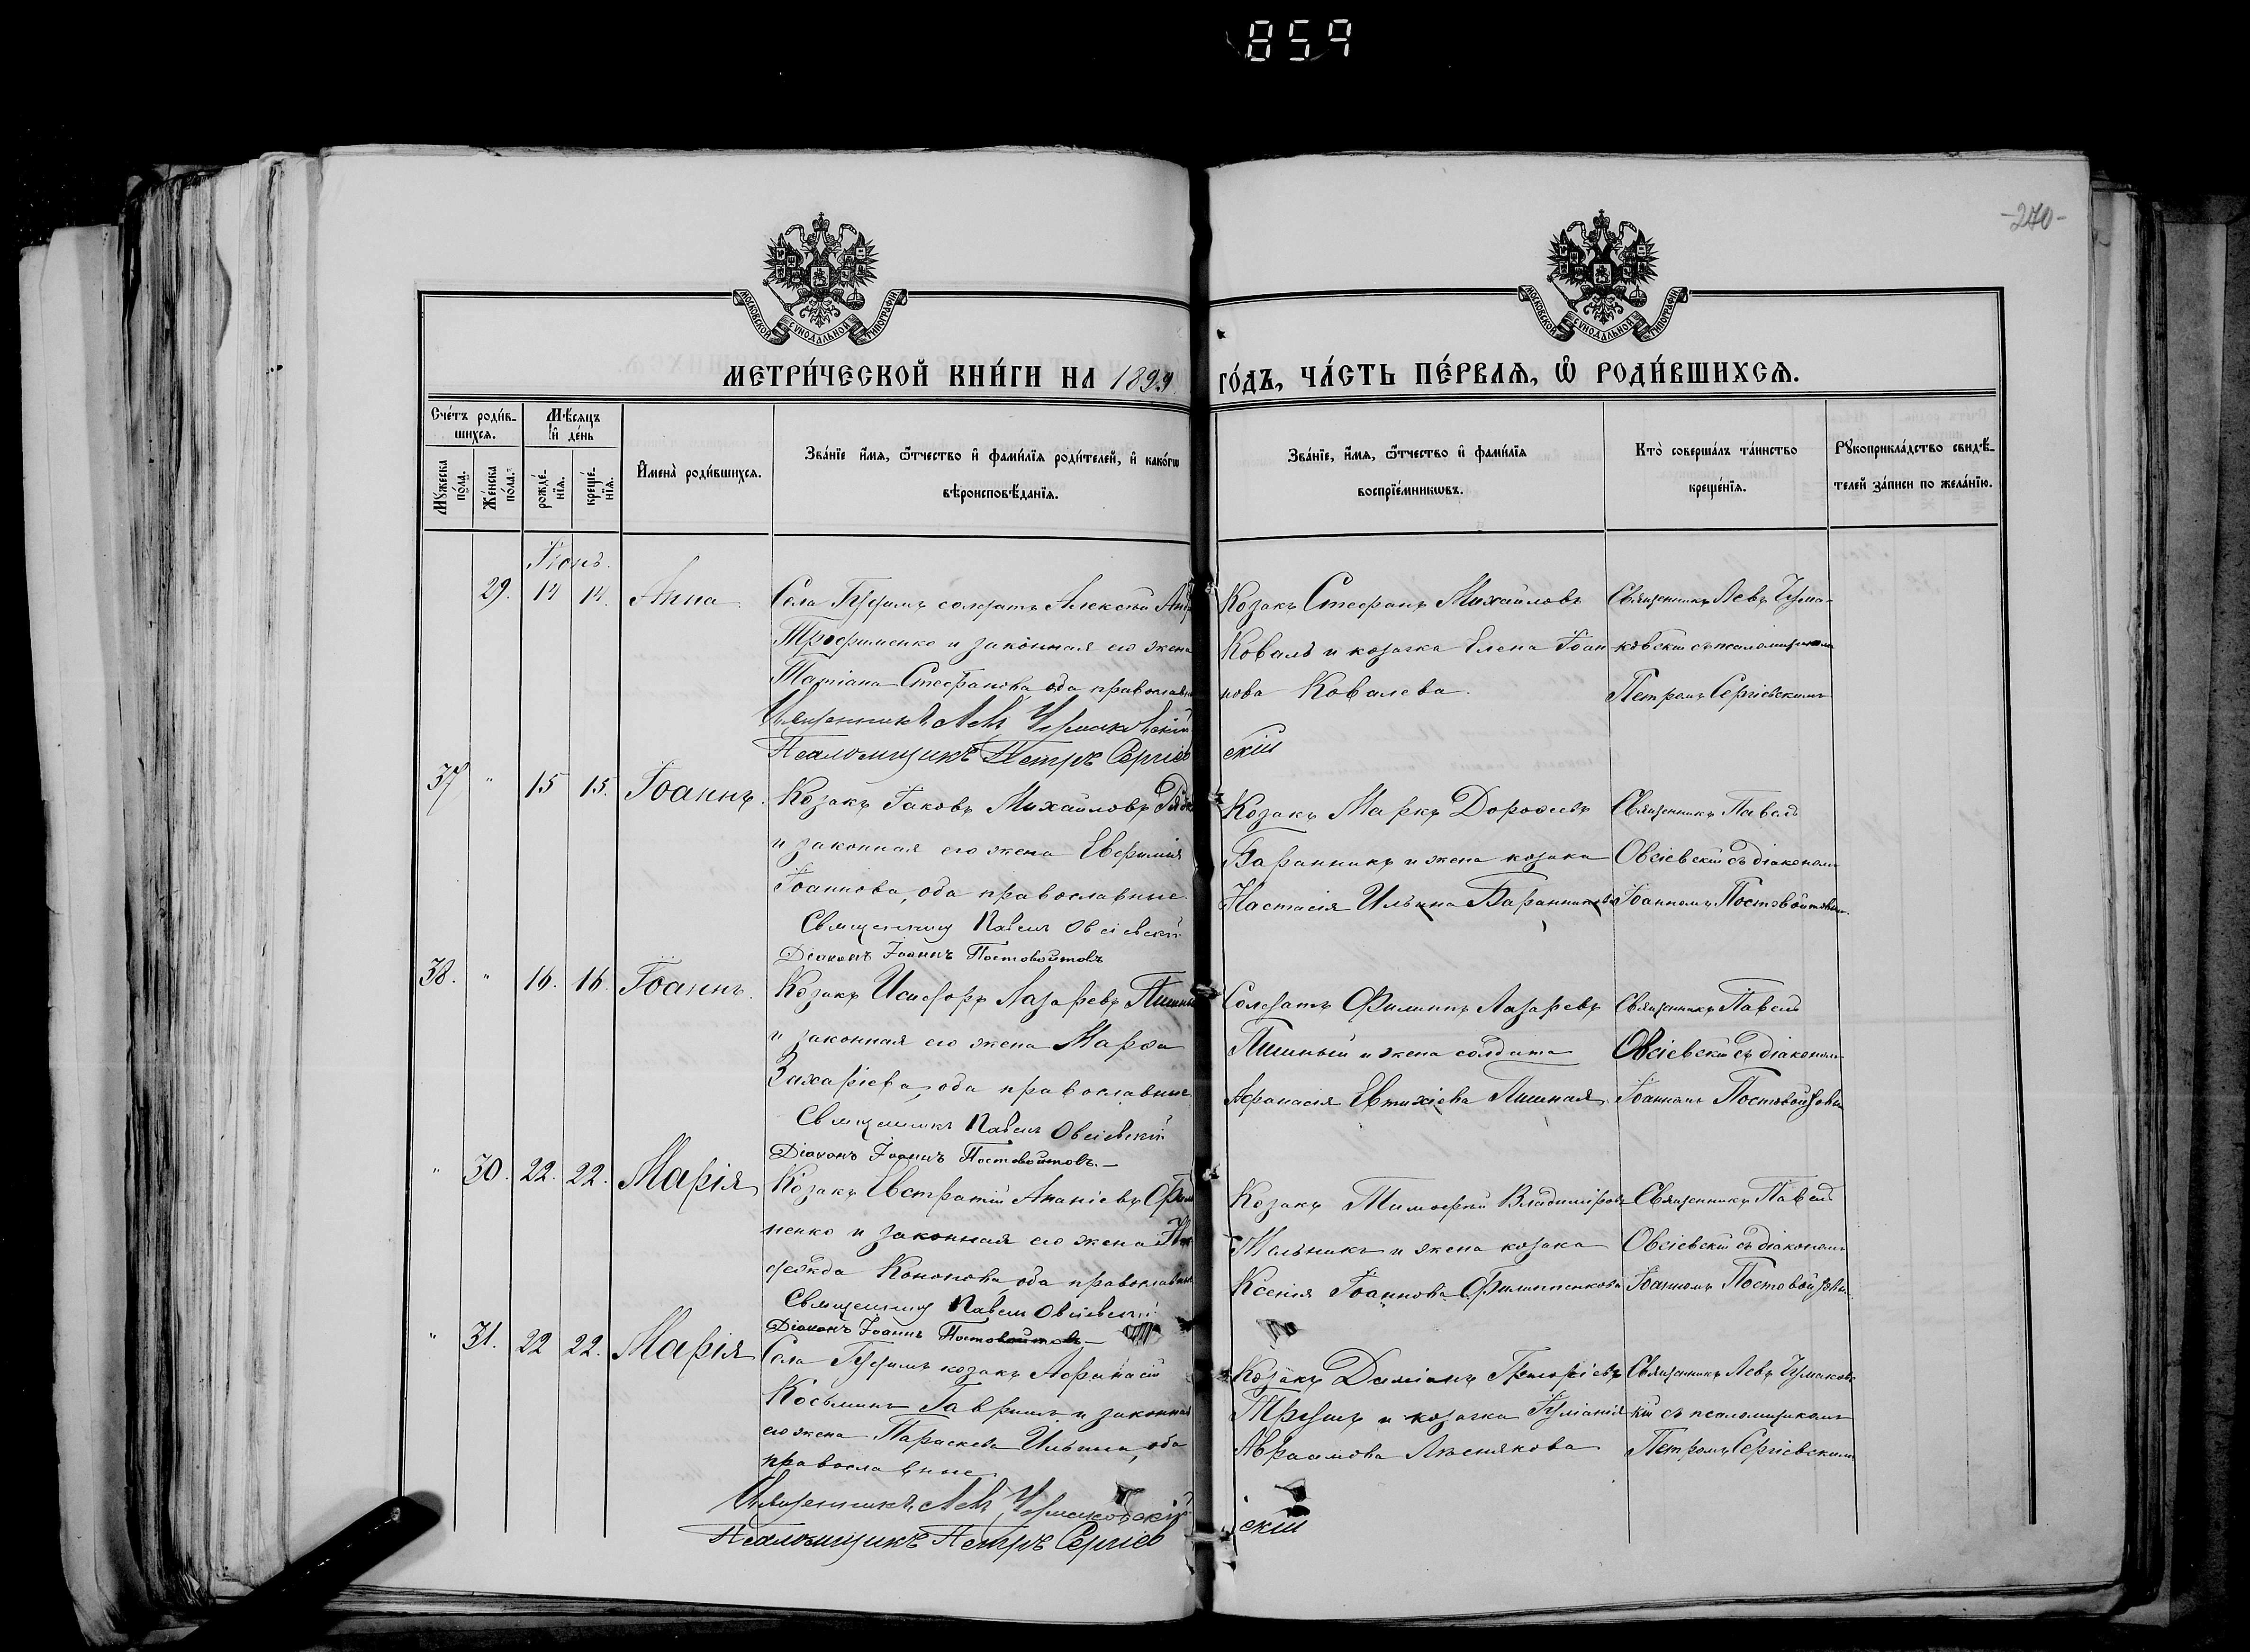 859
-270-
МОСКОВСКОЙ СУНОДАЛЬНОЙ ТИПОГРАФІИ
МОСКОВСКОЙ СУНОДАЛЬНОЙ ТИПОГРАФІИ
МЕТРИ́ЧЕСКОЙ КНИ́ГИ НА 1899 ГО́ДЪ, ЧА́СТЬ ПЕ́РВАѦ, Ѡ҆ РОДИ́ВШИХСѦ.
Сче́тъ роди́в-
шихсѧ.
Мѣ́сѧцъ
и҆ де́нь
Мꙋжеска
по́ла.
Же́нска
по́ла.
рожде́-
нїѧ.
креще́-
нїѧ.
И҆мена̀ роди́вшихсѧ.
Зва́нїе и҆́мѧ, ѻ҆́тчество и҆ фами́лїѧ роди́телей, и҆ како́гѡ
вѣроисповѣ́данїѧ.
Зва́нїе, и҆́мѧ, ѻ҆́тчество и҆ фами́лїѧ
воспрїе́мникѡвъ.
Кто̀ соверша́лъ та́инство
креще́нїѧ.
Рꙋкоприкла́дство свидѣ́-
телей за́писи по жела́нїю.
Іюнь.
29. 14 14. Анна.
Села солдатъ Алексѣй
Трофименко и законная его жена
Татіана Стефанова, оба православ
Священникъ Левъ
Псаломщикъ Петръ Сергіевскій
Козакъ Стефанъ Михайловъ
Коваль и козачка Елена Іоан
нова Ковалева.
Священникъ Левъ
съ псаломщикомъ
Петромъ Сергіевскимъ
37 " 15 15. Іоаннъ.
Козакъ Іаковъ Михайловъ
и законная его жена Евфимія
Іоаннова, оба православные.
Священникъ Павелъ Овсіевскій
Діаконъ Іоаннъ Постовойтовъ
Козакъ Маркъ Дороѳеевъ
Баранникъ и жена козака
Настасія Ильина Баранникова
Священникъ Павелъ
Овсіевскій съ діакономъ
Іоанномъ Постовойтовымъ
38. " 16. 16. Іоаннъ.
Козакъ Исидоръ Лазаревъ
и законная его жена Марѳа
Захаріева, оба православные.
Священникъ Павелъ Овсіевскій
Діаконъ Іоаннъ Постовойтовъ.—
Солдатъ Филиппъ Лазаревъ
Пишный и жена солдата
Афанасія Евтихіева Пишная.
Священникъ Павелъ
Овсіевскій съ діакономъ
Іоанномъ Постовойтовымъ
" 30. 22. 22. Марія
Козакъ Евстратій Ананіевъ
ненко и законная его жена На
дежда Кононова, оба православные
Священникъ Павелъ Овсіевскій
Діаконъ Іоаннъ Постовойтовъ—
Козакъ Тимофей Владиміровъ
Мельникъ и жена козака
Ксенія Іоаннова Филиппенкова
Священникъ Павелъ
Овсіевскій съ діакономъ
Іоанномъ Постовойтовымъ
" 31. 22 22. Марія
Села козакъ Афанасій
Косьминъ Гавришъ и законная
его жена Параскева Ильина, оба
православные
Священникъ Левъ
Псаломщикъ Петръ Сергіевскій
Козакъ Даміанъ Григоріевъ
и козачка Іуліанія
Авраамова
Священникъ Левъ
кій съ псаломщикомъ
Петромъ Сергіевскимъ